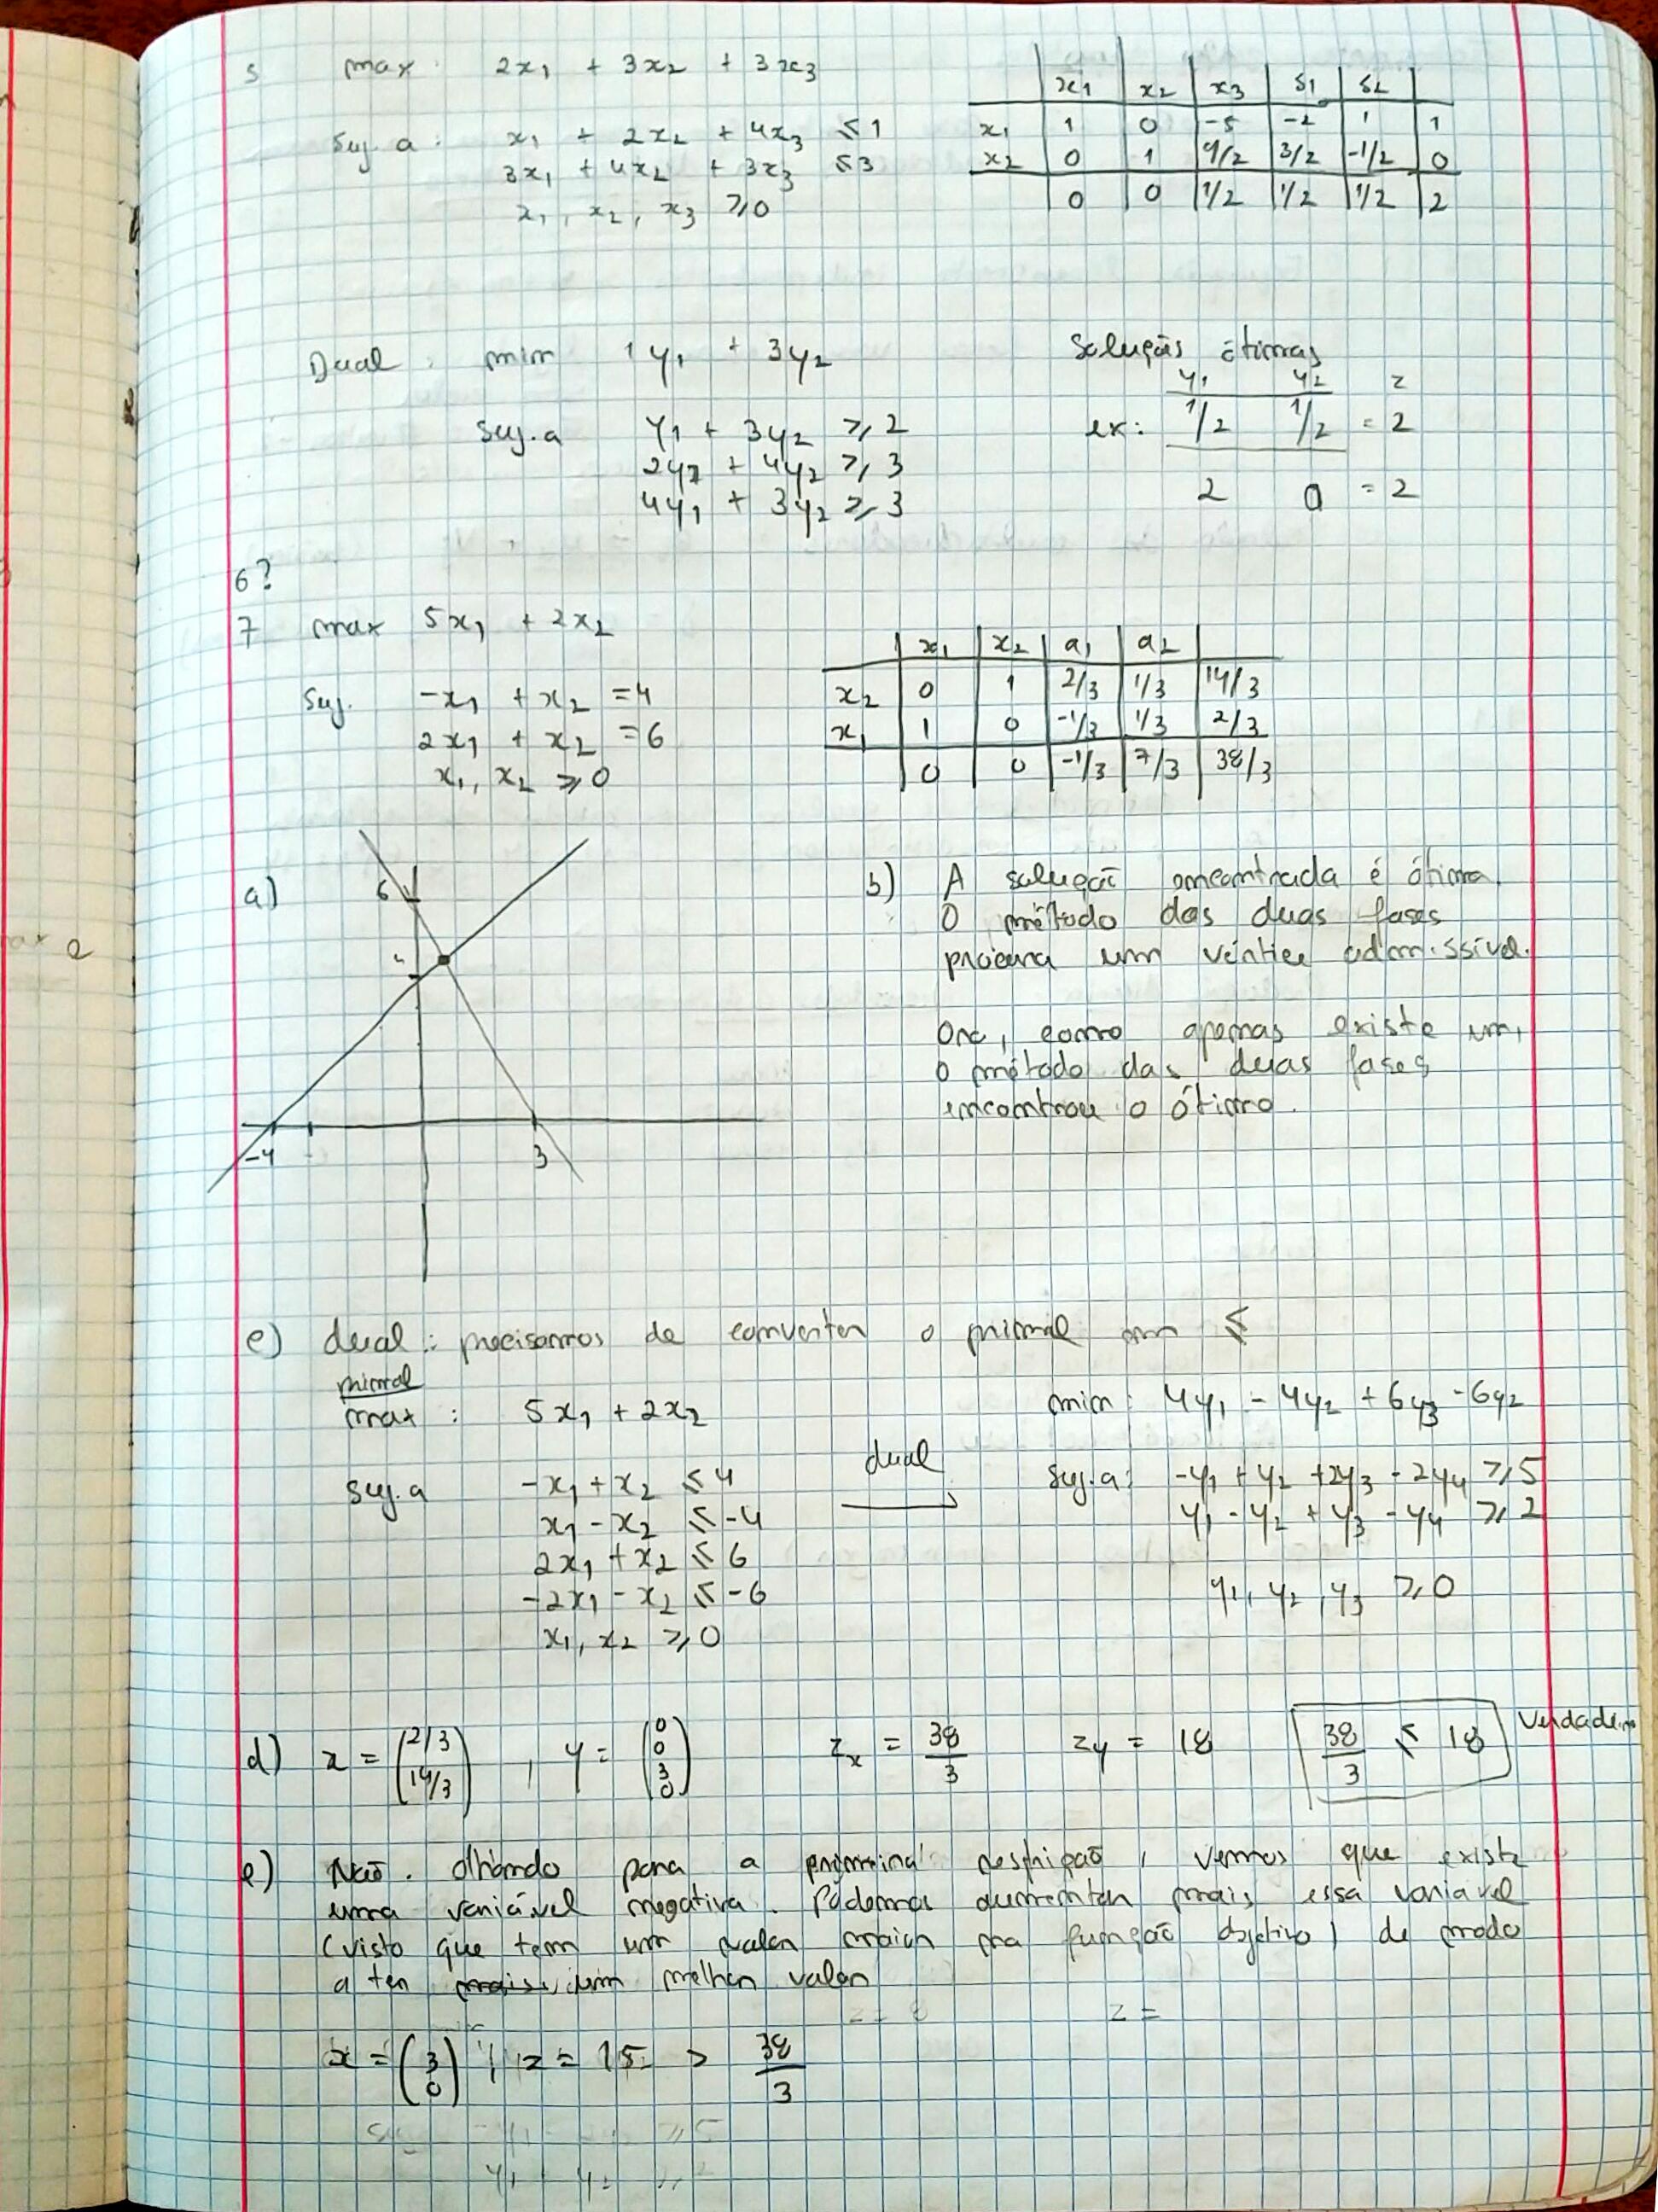 5 max 2x₁ + 3x₂ + 3x₃
Suj. a: x₁ + 2x₂ + 4x₃ ≤ 1
3x₁ + 4x₂ + 3x₃ ≤ 3
x₁, x₂, x₃ ≥ 0
x₁ x₂ x₃ s₁ s₂
x₁ 1 0 -5 -2 1 1
x₂ 0 1 9/2 3/2 -1/2 0
0 0 1/2 1/2 1/2 2
Dual: min 1y₁ + 3y₂
suj. a y₁ + 3y₂ ≥ 2
2y₂ + 4y₂ ≥ 3
4y₁ + 3y₂ ≥ 3
Soluções ótimas
y₁ y₂ z
ex: 1/2 1/2 = 2
2 0 = 2
6?
7 max 5x₁ + 2x₂
Suj. -x₁ + x₂ = 4
2x₁ + x₂ = 6
x₁, x₂ ≥ 0
x₁ x₂ a₁ a₂
x₂ 0 1 2/3 1/3 14/3
x₁ 1 0 -1/3 1/3 2/3
0 0 -1/3 7/3 38/3
a)
6
4
-4 3
b) A solução encontrada é ótima.
O método das duas fases
procura um vértice admissível.
Ora, como apenas existe um,
o método das duas fases
encontrou o ótimo.
c) dual: precisamos de converter o primal em ≤
primal
max: 5x₁ + 2x₂
suj. a -x₁ + x₂ ≤ 4
x₁ - x₂ ≤ -4
2x₁ + x₂ ≤ 6
-2x₁ - x₂ ≤ -6
x₁, x₂ ≥ 0
dual
min: 4y₁ - 4y₂ + 6y₃ - 6y₂
suj. a: -y₁ + y₂ + 2y₃ - 2y₄ ≥ 5
y₁ - y₂ + y₃ - y₄ ≥ 2
y₁, y₂, y₃ ≥ 0
d) x = (2/3 14/3), y = (0 0 3 0) zₓ = 38/3 zy = 18 38/3 ≤ 18 Verdadeiro
e) Não. Olhando para a primeira restrição, vemos que existe
uma variável negativa. Podemos aumentar mais essa variável
(visto que tem um valor maior na função objetivo) de modo
a ter mais um melhor valor
z = 8 z =
x = (3 0), z = 15 > 38/3